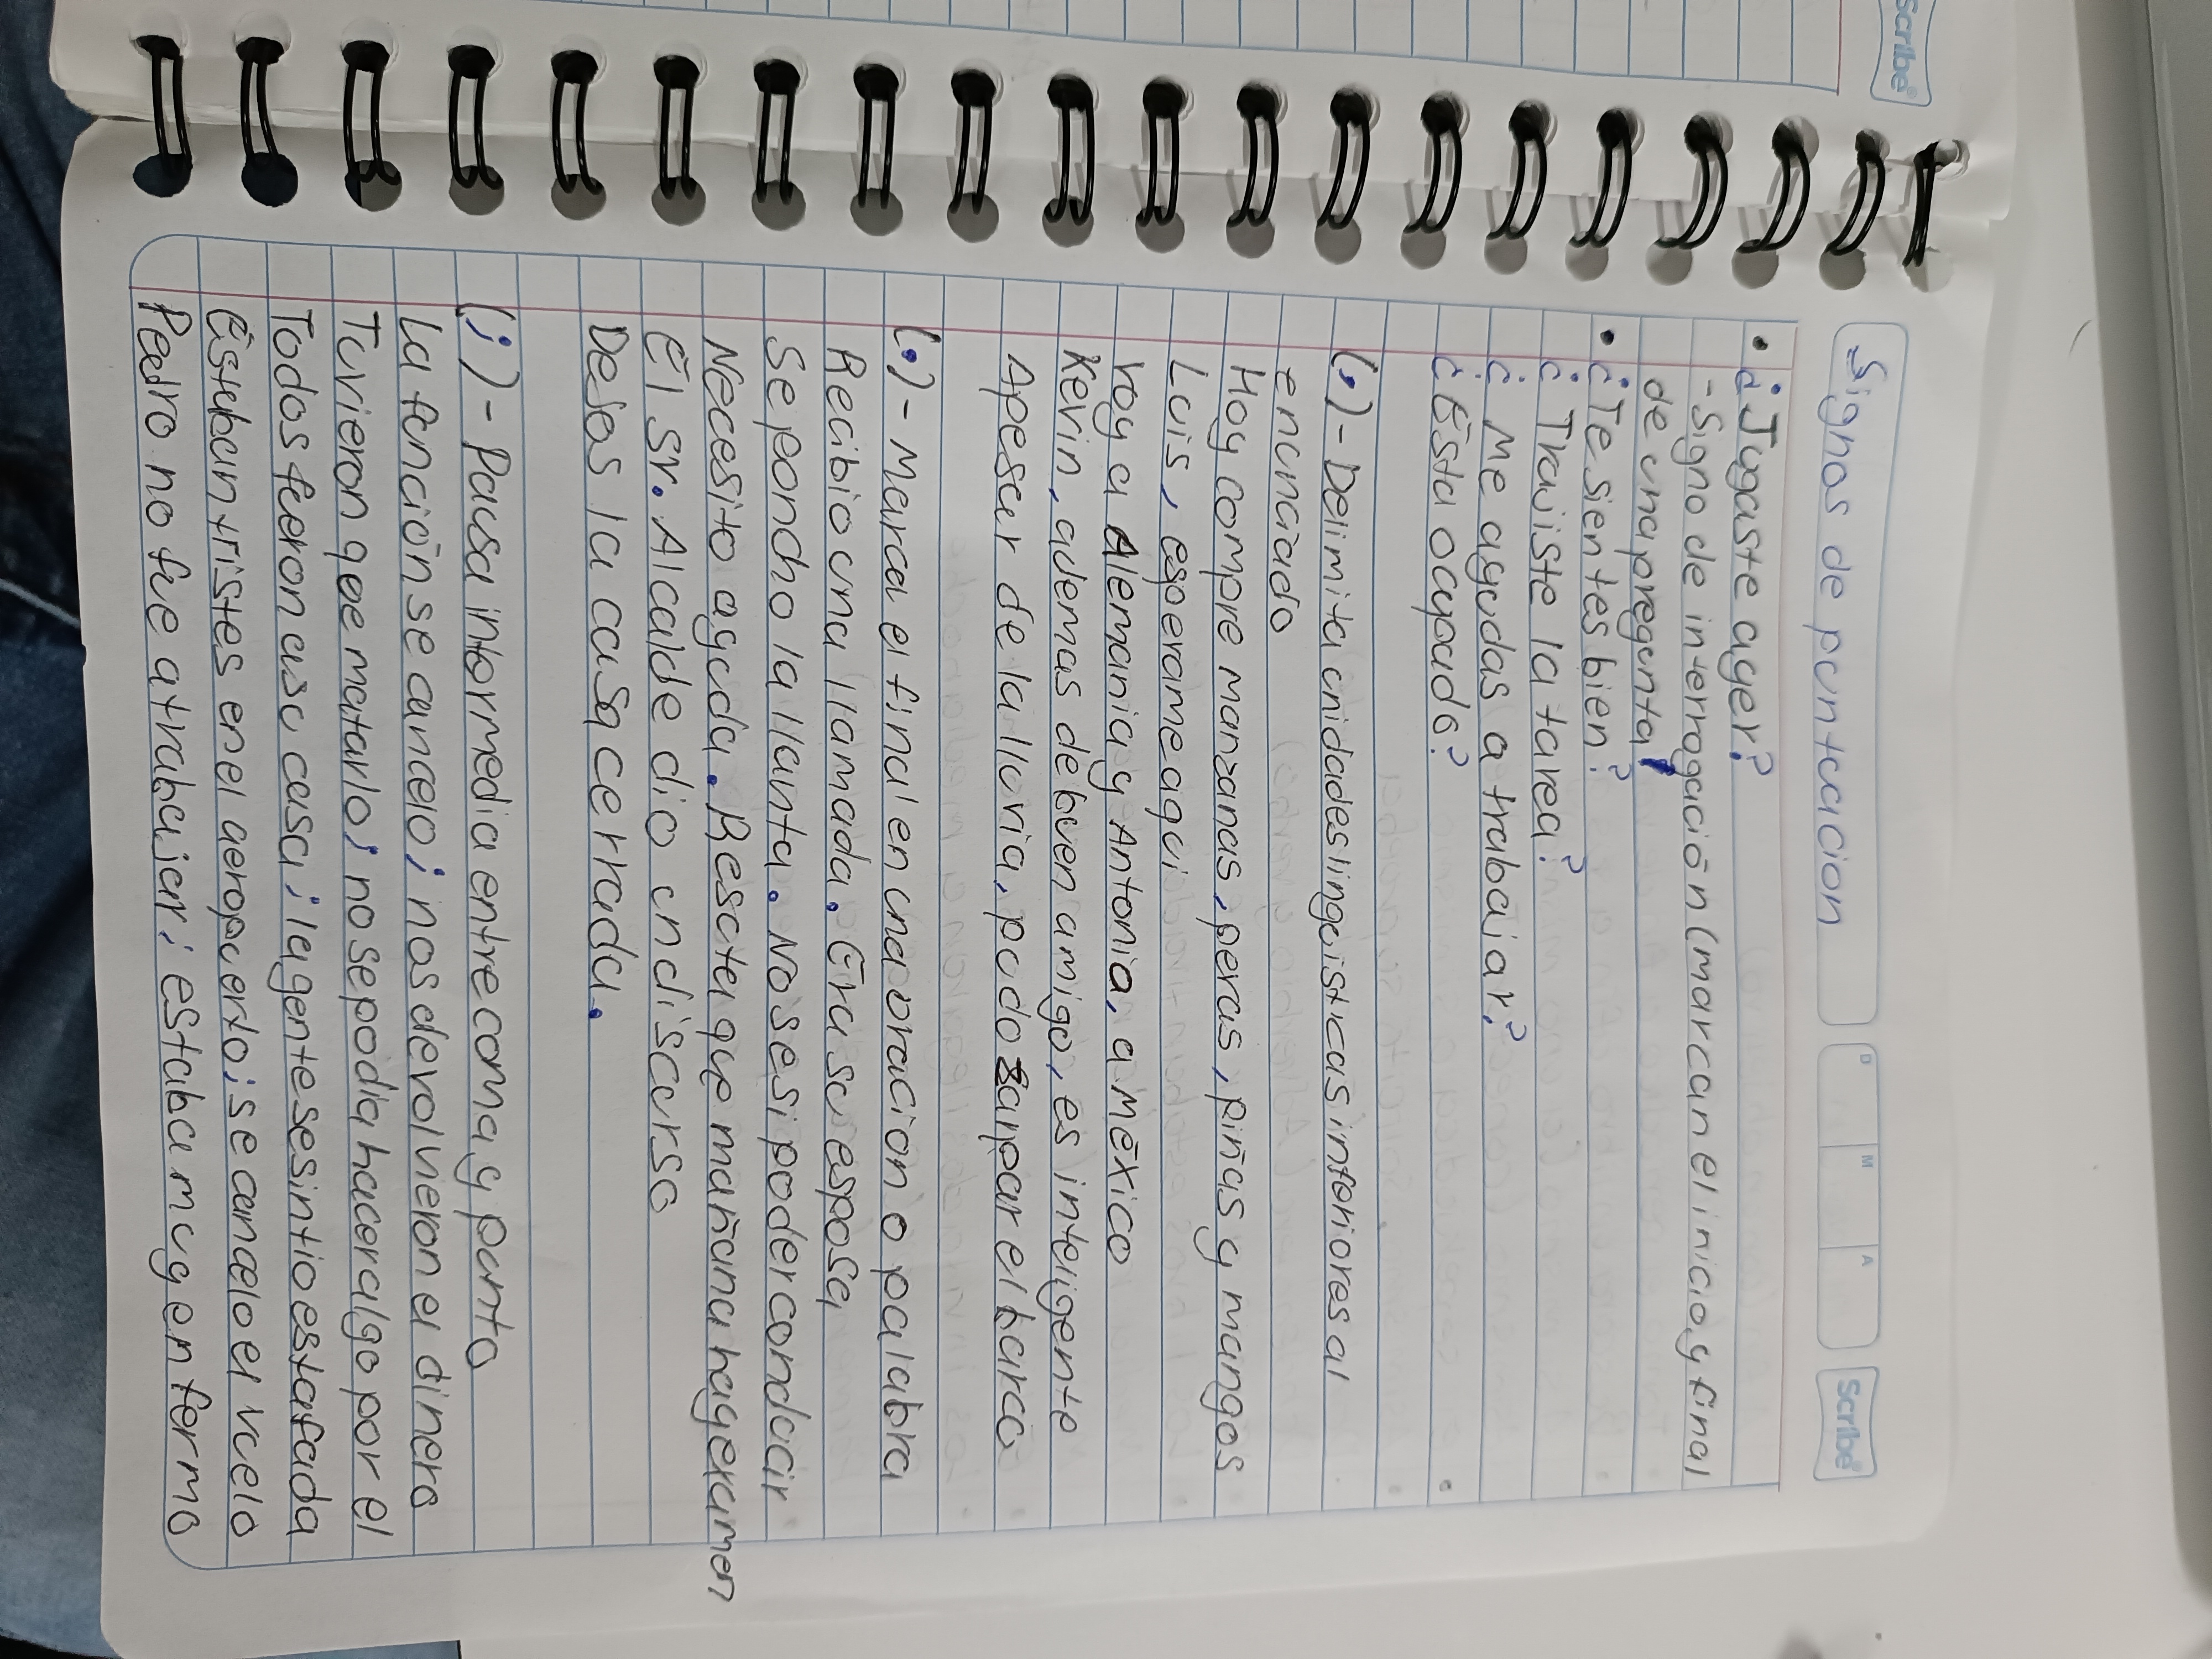 Scribe
Signos de puntuacion
D M A
Scribe
• ¿Jugaste ayer?
- Signo de interrogación (marcan el inicio y final
de una pregunta)
• ¿Te sientes bien?
¿Trajiste la tarea?
¿Me ayudas a trabajar?
¿Esta ocupado?
(,) - Delimita unidades linguisticas inferiores al
enunciado
Hoy compre manzanas, peras, piñas y mangos
Luis, esperame aqui
Voy a Alemania y Antonia, a México
Kevin, ademas de buen amigo, es inteligente
Apesar de la lluvia, pudo zarpar el barco
(.) - Marca el final en una oracion o palabra
Recibio una llamada. Era su esposa
Se poncho la llanta. No se si poder conducir
Necesito ayuda. Resulta que mañana hay examen
El Sr. Alcalde dio un discurso
Dejas la casa cerrada.
(;) - Pausa intermedia entre coma y punto
La función se cancelo; nos devolvieron el dinero
Tuvieron que matarlo; no se podia hacer algo por el
Todos fueron a su casa; la gente se sintio estafada
Estaban tristes en el aeropuerto; se cancelo el vuelo
Pedro no fue a trabajar; estaba muy enfermo